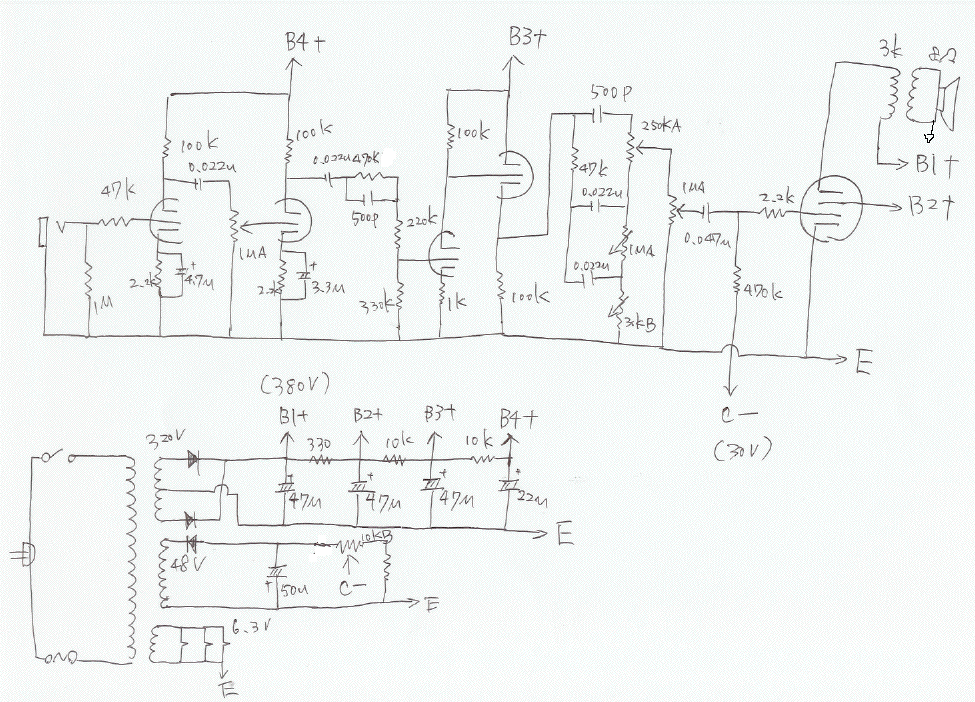 B4+
B3+
3k
8Ω
500P
250KA
100k
100k
100k
0.022u
0.022u
470k
47k
47k
B1+
500p
220k
0.022u
1MA
2.2k
B2+
1MA
1MA
0.047u
0.022u
2.2k
4.7u
3.3u
1M
330k
1k
100k
470k
E
(380V)
C-
B1+
B2+
B3+
B4+
(30V)
320V
330
10k
10k
47u
47u
47u
22u
E
10kB
48V
50u
C-
E
6.3V
E